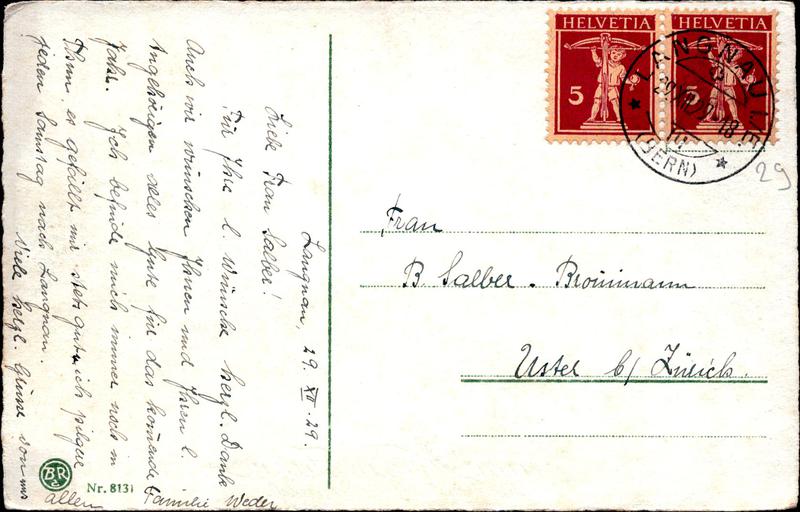 Langnau, 29. XII. 29.
Liebe Frau Salber!
Für Ihre l. Wünsche herzl. Dank
Auch wir wünschen Ihnen und Ihren l.
Angehörigen alles gute für das kommende
Jahr. Ich befinde mich immer noch in
Thun, es gefällt mir stets gut, ich pilgere
jeden Samstag nach Langnau.
Viele herzl. Grüsse von uns
allen Familie Weder
HELVETIA
5
HELVETIA
5
LANGNAU i. E.
29 XII 29-18
(BERN)
29
Frau
B. Salber-Bronimann
Uster b/ Zürich.
BR
Nr. 8131